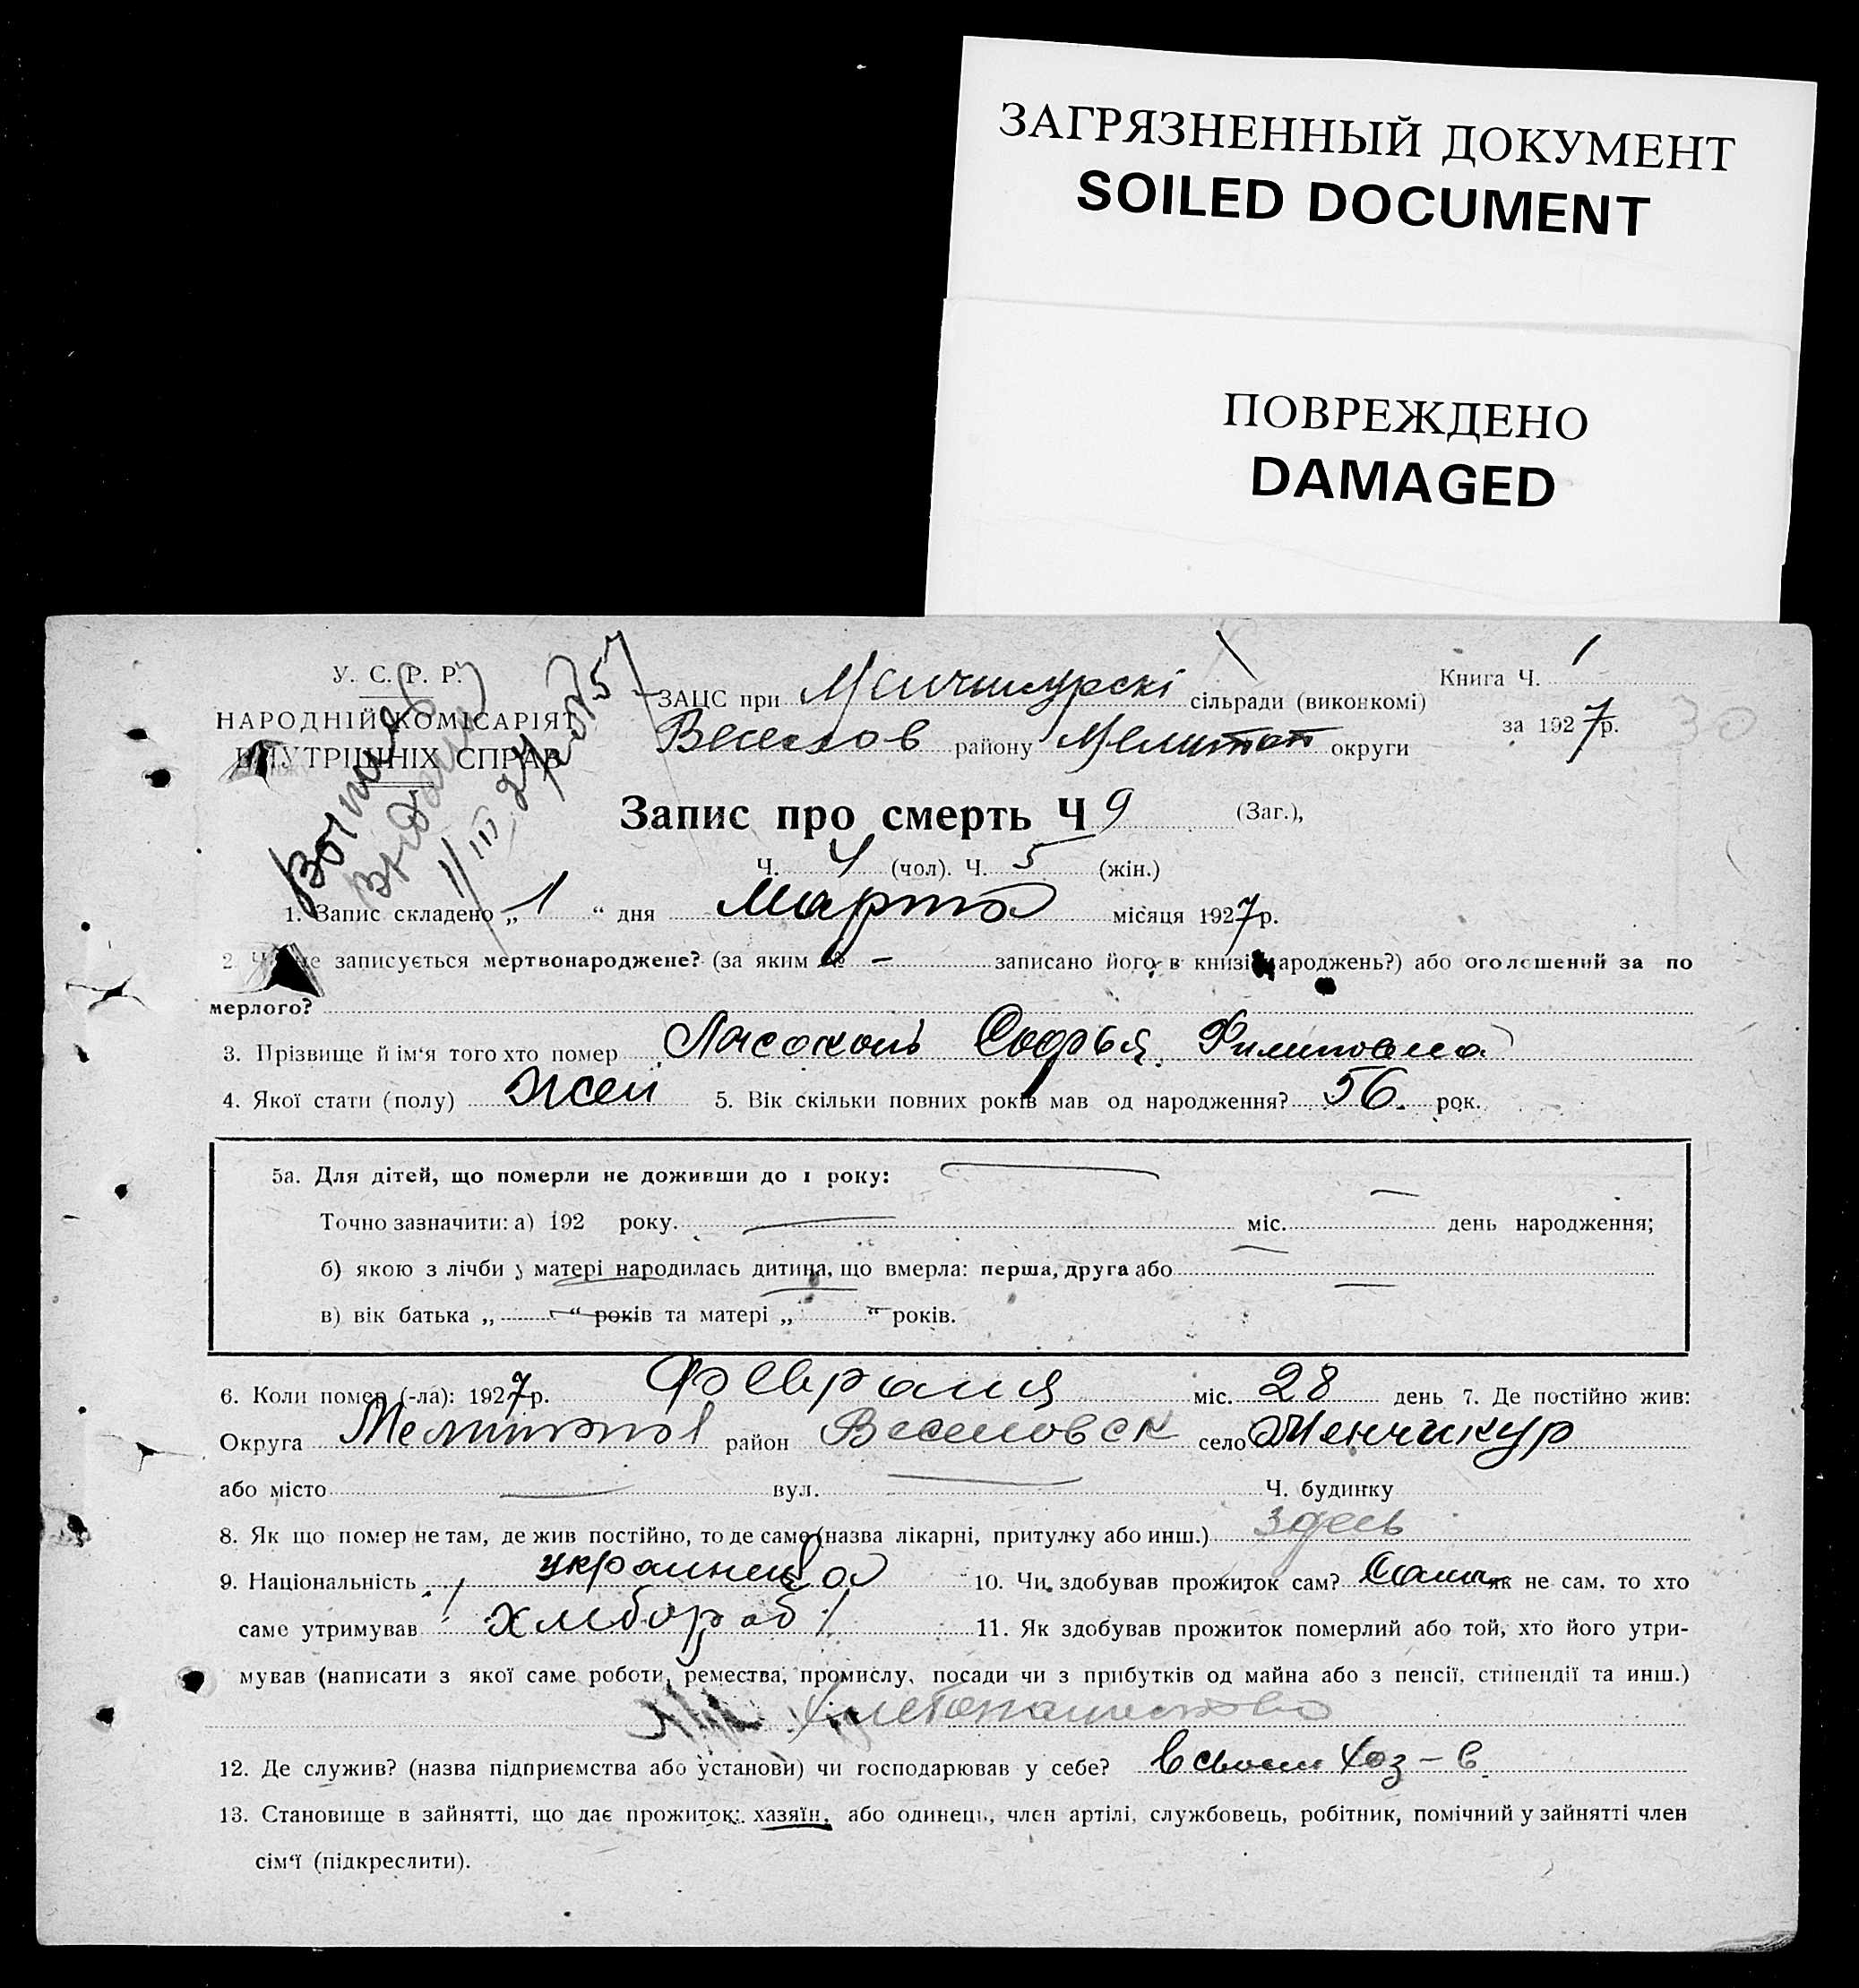 ЗАГРЯЗНЕННЫЙ ДОКУМЕНТ
SOILED DOCUMENT
ПОВРЕЖДЕНО
DAMAGED
У. С. Р. Р.
НАРОДНІЙ КОМІСАРІЯТ
ВНУТРІШНІХ СПРАВ
ЗАЦС при Менчикурскі сільради (виконкомі)
Веселов району Мелитоп округи
Книга Ч. 1
за 1927р.
30
Запис про смерть Ч 9 (Заг.),
Ч. 4 (чол). Ч. 5 (жін.)
1. Запис складено „ 1 “ дня Марта місяця 1927р.
2. Чи не записується мертвонароджене? (за яким № – записано його в книзі народжень?) або оголошений за по
мерлого?
3. Прізвище й ім‘я того хто помер Софья Филиповна
4. Якої стати (полу) Жен 5. Вік скільки повних років мав од народження? 56. рок.
5а. Для дітей, що померли не доживши до 1 року:
Точно зазначити: а) 192 року. міс. день народження;
б) якою з лічби у матері народилась дитина, що вмерла: перша, друга або
в) вік батька „ “ років та матері „ “ років.
6. Коли помер (-ла): 1927р. Февраля міс. 28 день 7. Де постійно жив:
Округа Мелитопол район Веселовск село Менчикур
або місто вул. Ч. будинку
8. Як що помер не там, де жив постійно, то де саме (назва лікарні, притулку або инш.) Здесь
9. Національність украинка 10. Чи здобував прожиток сам? Сама як не сам, то хто
саме утримував хлібороб 11. Як здобував прожиток померлий або той, хто його утри-
мував (написати з якої саме роботи, ремества, промислу, посади чи з прибутків од майна або з пенсії, стипендії та инш.)
Хлебопашество
12. Де служив? (назва підприємства або установи) чи господарював у себе? в своем хоз-в.
13. Становище в зайнятті, що дає прожиток: хазяїн, або одинець, член артілі, службовець, робітник, помічний у зайнятті член
сім‘ї (підкреслити).